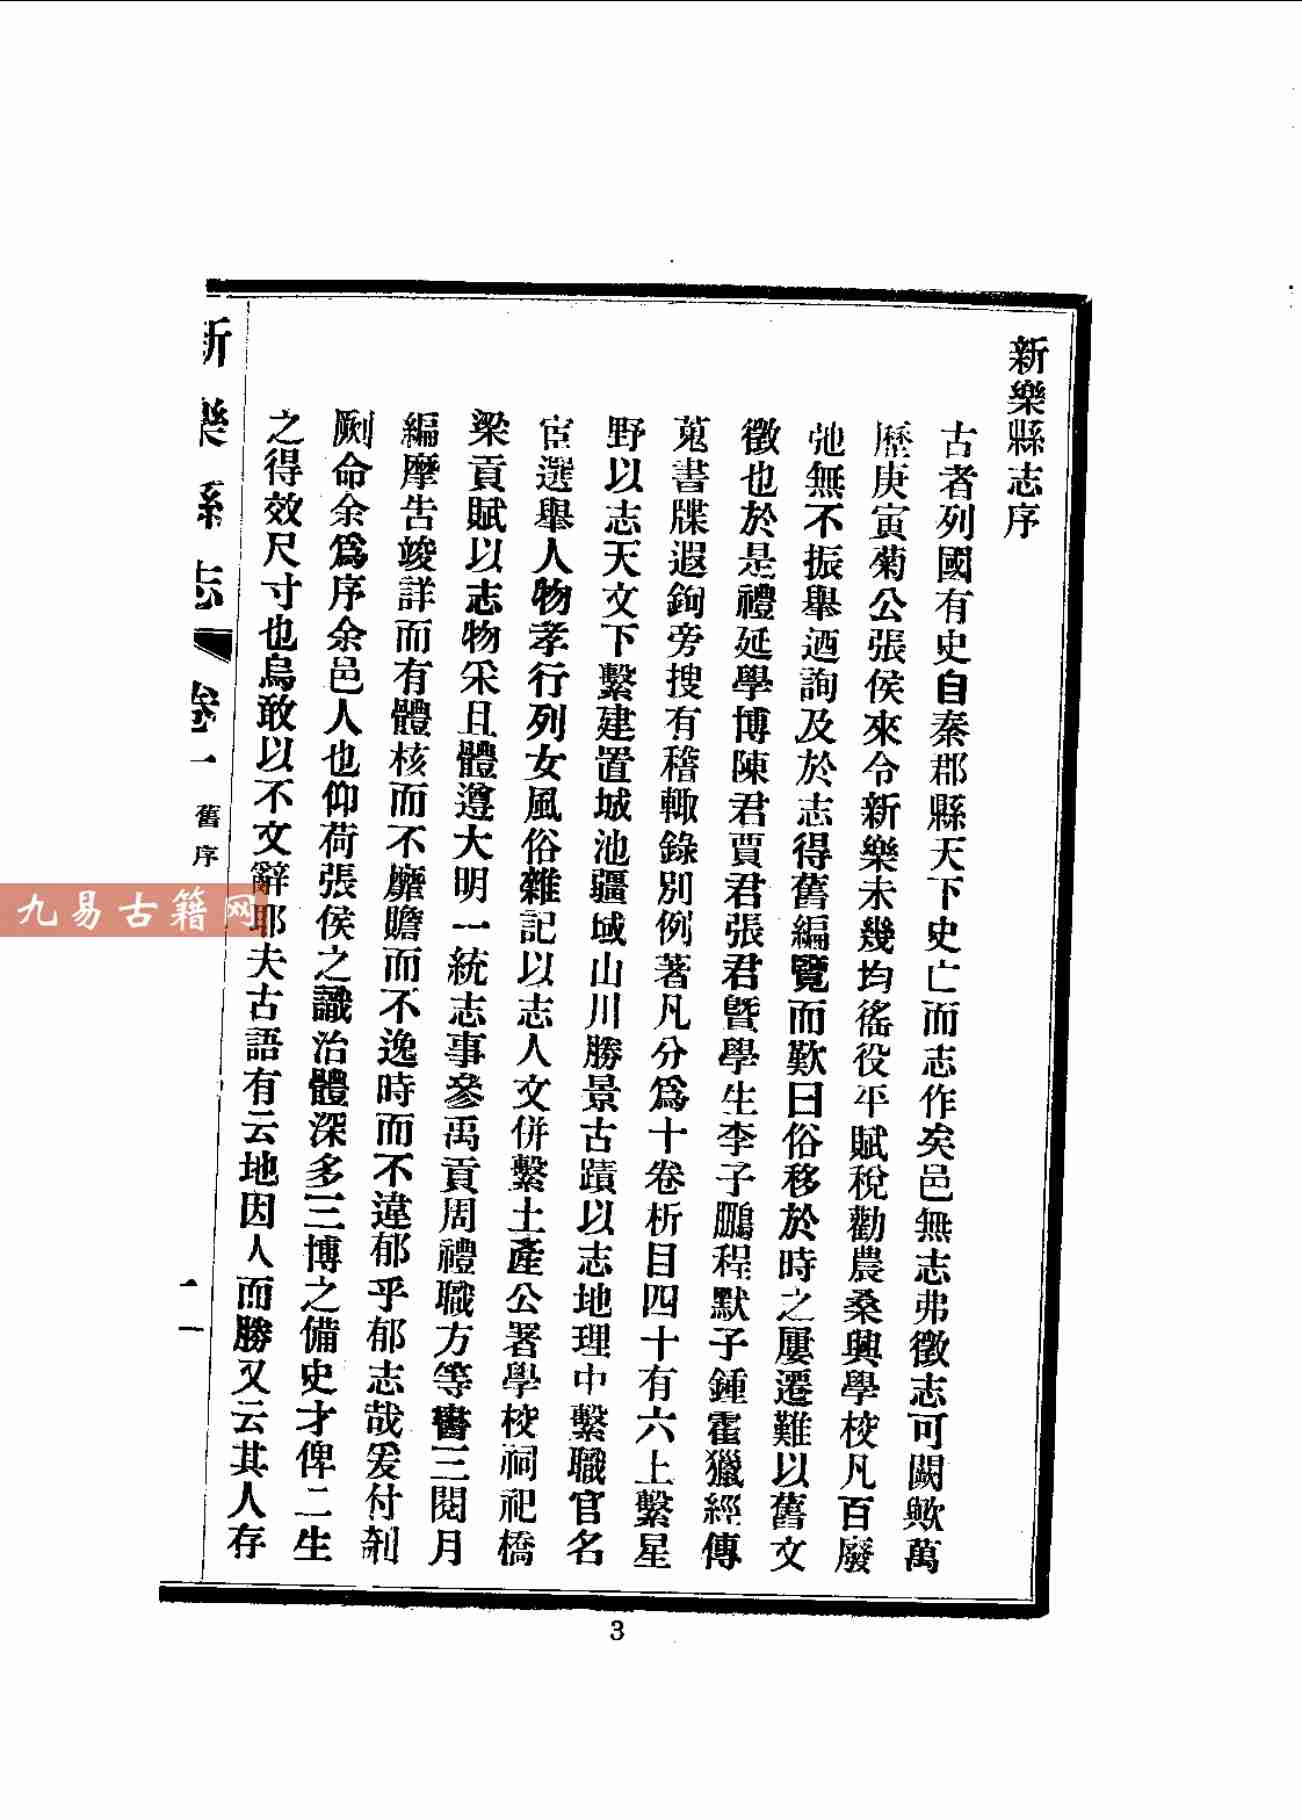 新樂縣志序
古者列國有史自秦郡縣天下史亡而志作矣邑無志弗徵志可闕歟萬
歷庚寅菊公張侯來令新樂未幾均徭役平賦稅勸農桑興學校凡百廢
弛無不振舉迺詢及於志得舊編覽而歎曰俗移於時之屢遷難以舊文
徵也於是禮延學博陳君賈君張君暨學生李子鵬程默子鍾霍獵經傳
蒐書牒遐鉤旁搜有稽輙錄別例著凡分爲十卷析目四十有六上繫星
野以志天文下繫建置城池疆域山川勝景古蹟以志地理中繫職官名
宦選舉人物孝行列女風俗雜記以志人文併繫土產公署學校祠祀橋
梁貢賦以志物采且體遵大明一統志事參禹貢周禮職方等書三閱月
編摩告竣詳而有體核而不靡贍而不逸時而不違郁乎郁志哉爰付剞
劂命余爲序余邑人也仰荷張侯之識治體深多三博之備史才俾二生
之得效尺寸也烏敢以不文辭耶夫古語有云地因人而勝又云其人存
新樂縣志 卷一 舊序 一
九易古籍网
3